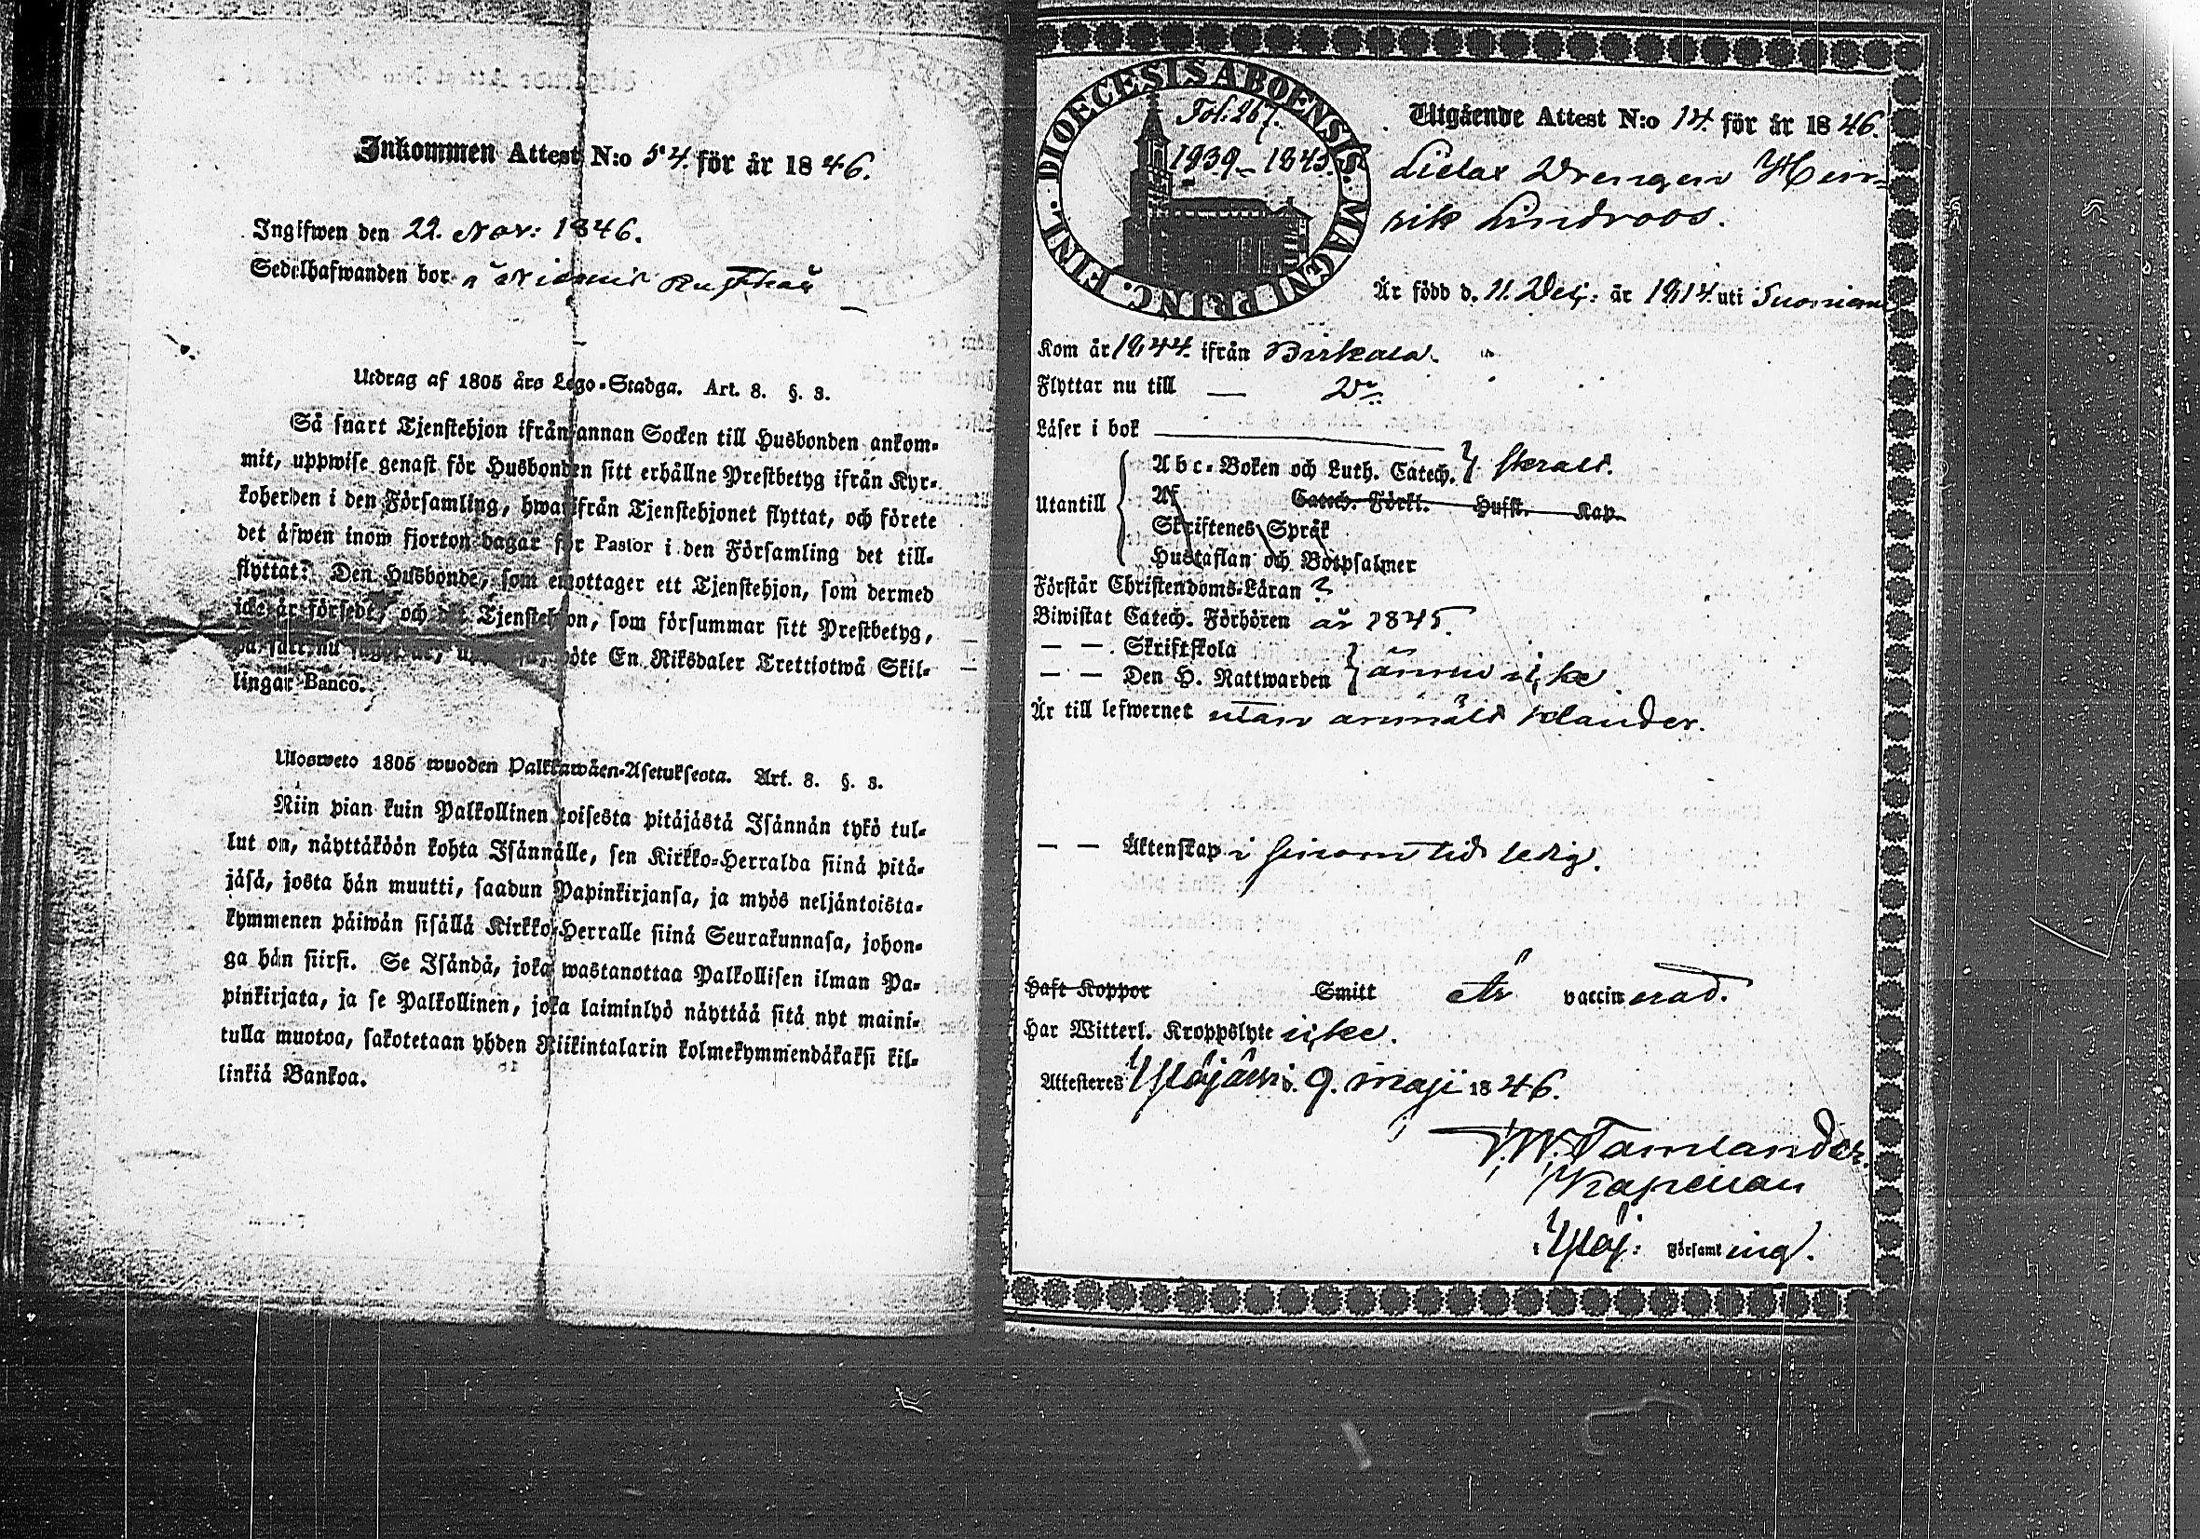 Inkommen Attest N:o 54. för år 1846.
Ingifwen den 22. Nov: 1846.
Sedelhafwanden bor å
Utdrag af 1805 års Lego-Stadga. Art. 8. §. 3.
Så snart Tjenstehjon ifrån annan Socken till Husbonden ankom-
mit, uppwise genast för Husbonden sitt erhållne Prestbetyg ifrån Kyr-
koherden i den Församling, hwarifrån Tjenstehjonet flyttat, och förete
det äfwen inom fjorton dagar för Pastor i den Församling det till-
flyttat. Den Husbonde, som emottager ett Tjenstehjon, som dermed
icke är försedt, och det Tjenstehjon, som försummar sitt Prestbetyg,
på sätt, nu böte En Riksdaler Trettiotwå Skil-
lingar Banco.
Ulosweto 1805 wuoden Palkkawäen-Asetuksesta. Art. 8. §. 3.
Niin pian kuin Palkollinen toisesta pitäjästä Isännän tykö tul-
lut on, näyttäköön kohta Isännälle, sen Kirkko-Herralda siinä pitä-
jäsä, josta hän muutti, saadun Papinkirjansa, ja myös neljäntoista-
kymmenen päiwän sisällä Kirkko-Herralle siinä Seurakunnasa, johon-
ga hän siirsi. Se Isändä, joka wastanottaa Palkollisen ilman Pa-
pinkirjata, ja se Palkollinen, joka laiminlyö näyttää sitä nyt maini-
tulla muotoa, sakotetaan yhden Riikintalarin kolmekymmendäkaksi kil-
linkiä Bankoa.
DIOECESIS ABOENSIS. MAGNI PRINC. FINL.
Fol. 267.
1839-1845.
Utgående Attest N:o 14. för år 1846.
Drengen Hen-
rik Lindroos.
Är född d. 11. Dec: år 1814. uti
Kom år 1844. ifrån Birkala.
Flyttar nu till — Do
Läser i bok
Utantill
Abc-Boken och Luth. Catech. } svagt.
Af Catech. Förkl. Hufst. Kap.
Skriftenes Språk
Hustaflan och Botpsalmer
Förstår Christendoms-Läran ?
Biwistat Catech. Förhören år 1845.
— — Skriftskola
— — Den H. Nattwarden } ännu icke
Är till lefwernet utan anmäldt klander.
— — Äktenskap i tid ledig.
Haft Koppor Smitt Är vaccinerad.
Har Witterl. Kroppslyte icke.
Attesteres Ylöjärvi d. 9. Maji 1846.
Tamlander.
Kapellan
i Ylöj: Församling.